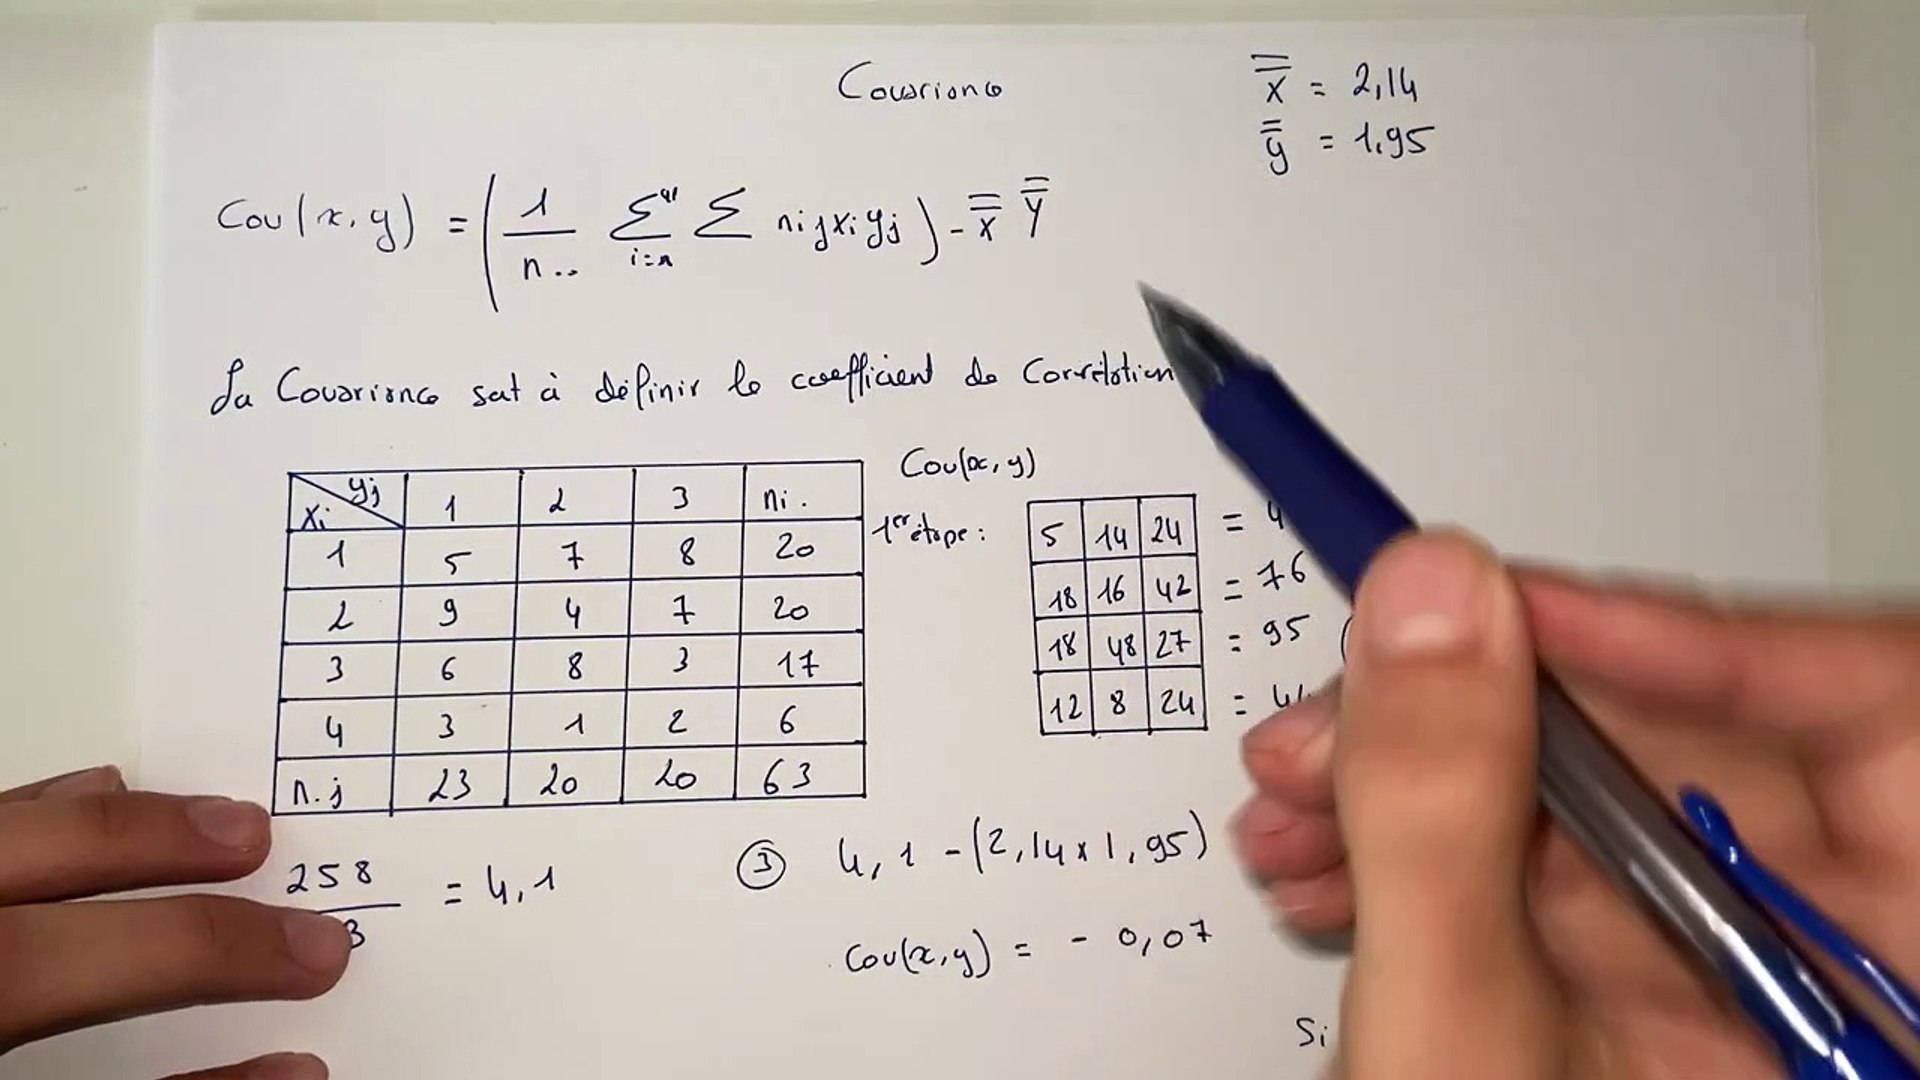 Covariance
x̿ = 2,14
y̿ = 1,95
Cov(x,y) = (1/n.. Σ Σ nij xi yj) - x̿ y̿
i=1
La Covariance sert à définir le coefficient de Corrélation
xi yj 1 2 3 ni.
1 5 7 8 20
2 9 4 7 20
3 6 8 3 17
4 3 1 2 6
n.j 23 20 20 63
Cov(x,y)
1er étape :
5 14 24 = 4
18 16 42 = 76
18 48 27 = 95
12 8 24 = 44
258 / 3 = 4,1
③ 4,1 - (2,14 x 1,95)
Cov(x,y) = - 0,07
Si